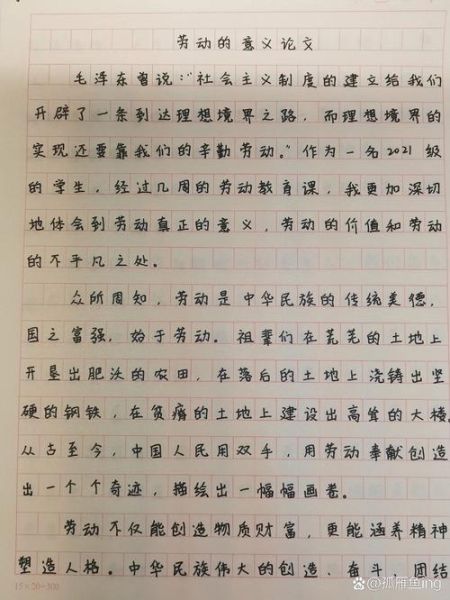 劳动的意义论文
毛泽东曾说:"社会主义制度的建立给我们
开辟了一条到达理想境界之路,而理想境界的
实现还要靠我们的辛勤劳动。"作为一名2021级
的学生,经过几周的劳动教育课,我更加深切
地体会到劳动真正的意义,劳动的价值和劳动
的不平凡之处。
众所周知,劳动是中华民族的传统美德,
国之富强,始于劳动。祖辈们在荒芜的土地上
开垦出肥沃的农田,在落后的土地上浇铸出坚
硬的钢铁,在贫瘠的土地上建设出高耸的大楼。
从古至今,中国人民用双手,用劳动奉献创造
出一个个奇迹,描绘出一幅幅画卷。
劳动不仅能创造物质财富,更能涵养精神
塑造人格。中华民族伟大的创造、奋斗、团结
15×20=300
@孤雁鱼ing